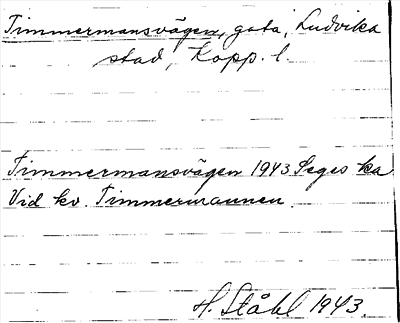 Timmermansvägen, gata, Ludvika
stad, Kopp. l.
Timmermansvägen 1943 Seges ka
Vid kv. Timmermannen.
H. Ståhl 1943.